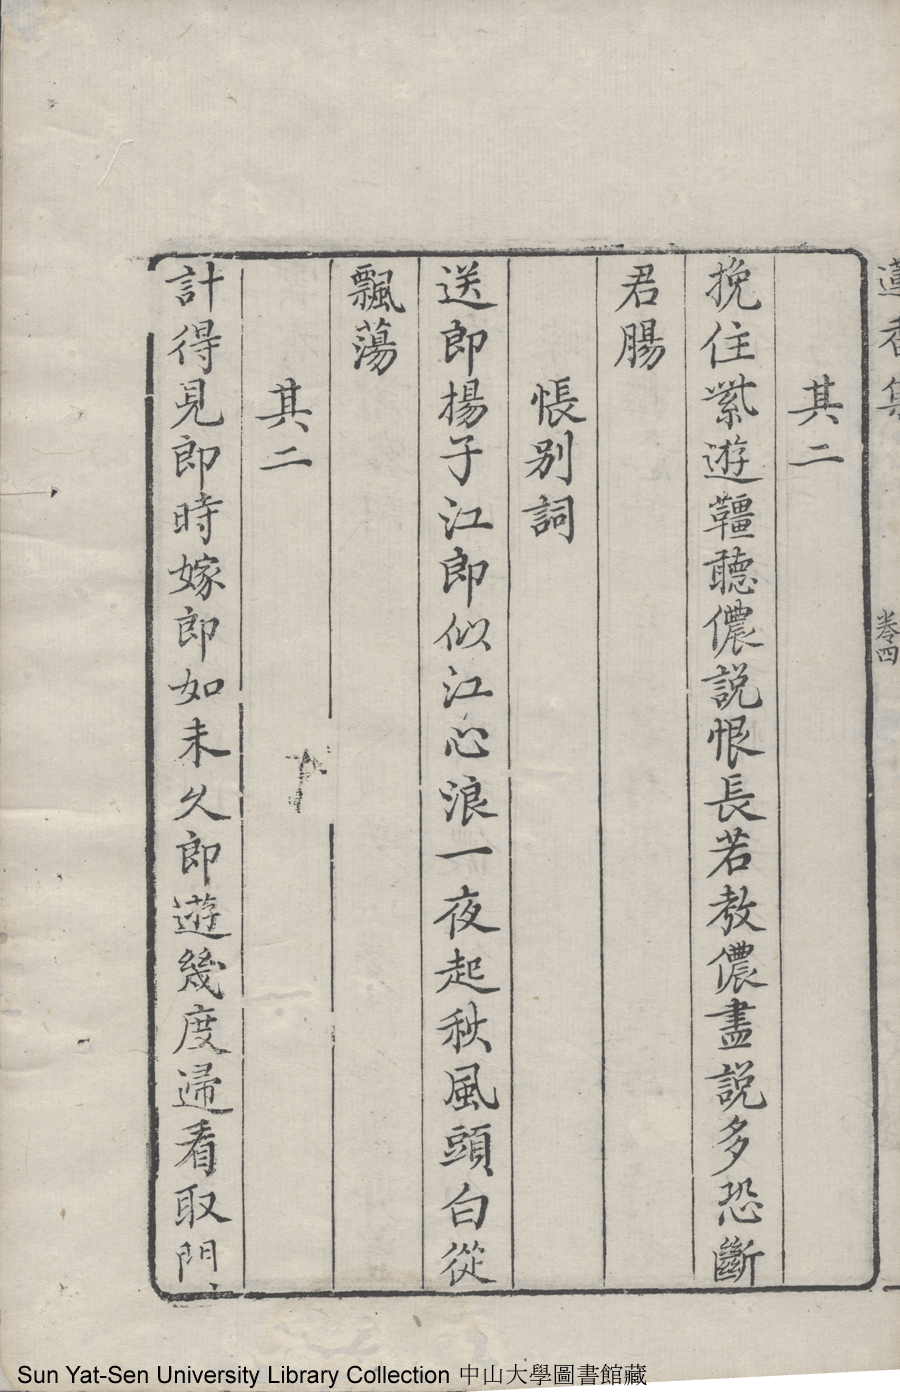 蓮香集
卷四
其二
挽住紫遊韁聽儂説恨長若教儂盡説多恐斷
君腸
悵别詞
送郎揚子江郎似江心浪一夜起秋風頭白從
飄蕩
其二
計得見郎時嫁郎如未久郎遊幾度歸看取門
Sun Yat-Sen University Library Collection 中山大學圖書館藏